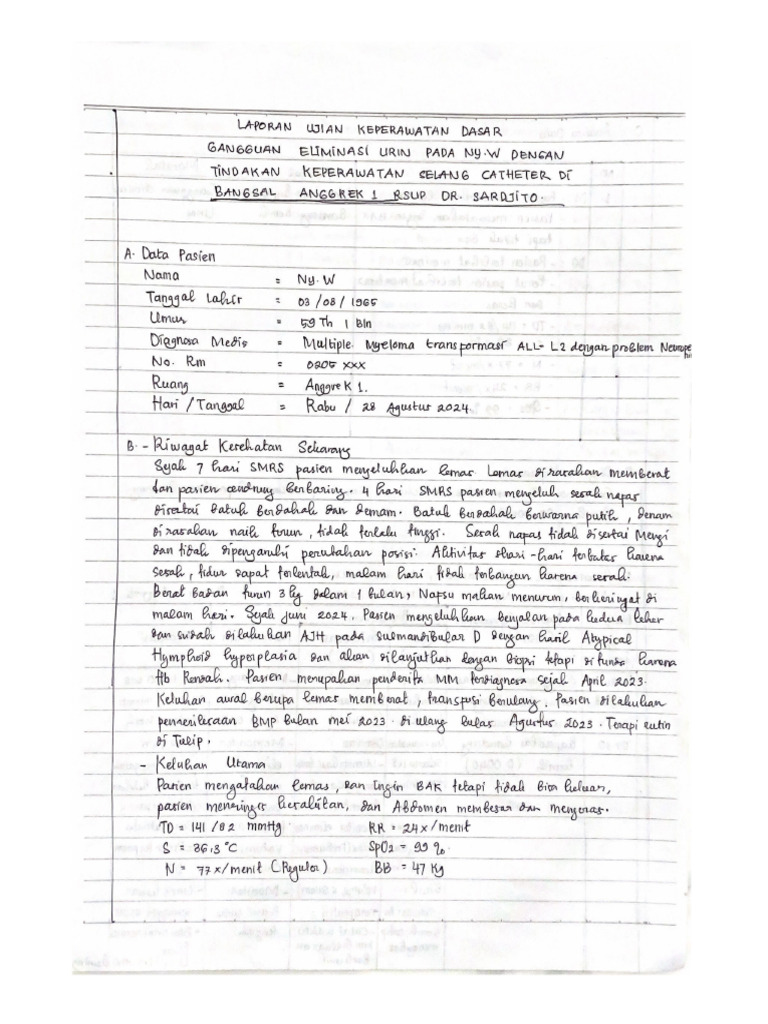 LAPORAN UJIAN KEPERAWATAN DASAR
GANGGUAN ELIMINASI URIN PADA NY.W DENGAN
TINDAKAN KEPERAWATAN SELANG CATHETER DI
BANGSAL ANGGREK 1 RSUP DR. SARDJITO.
A. Data Pasien
Nama = Ny. W
Tanggal Lahir = 03 / 08 / 1965
Umur = 59 Th 1 Bln
Diagnosa Medis = Multiple Myeloma transformasi ALL-L2 dengan problem
No. Rm = 0205 xxx
Ruang = Anggrek 1.
Hari / Tanggal = Rabu / 28 Agustus 2024
B. - Riwayat Kesehatan Sekarang
Sejak 7 hari SMRS pasien mengeluhkan lemas Lemas dirasakan memberat
dan pasien cendrung berbaring. 4 hari SMRS pasien mengeluh sesak napas
disertai batuk berdahak dan demam. Batuk berdahak berwarna putih, demam
dirasakan naik turun, tidak terlalu tinggi. Sesak napas tidak disertai Mengi
dan tidak dipengaruhi perubahan posisi. Aktivitas sehari-hari terbatas karena
sesak, tidur dapat terlentak, malam hari tidak terbangun karena sesak.
Berat badan turun 3 kg dalam 1 bulan, Napsu makan menurun, berkeringat di
malam hari. Sejak Juni 2024. Pasien mengeluhkan benjolan pada kedua leher
dan sudah dilakukan AJH pada submandibular D dengan hasil Atypical
Hymphoid hyperplasia dan akan dilanjutkan dengan biopsi tetapi ditunda karena
Hb Rendah. Pasien merupakan penderita MM terdiagnosa sejak April 2023.
Keluhan awal berupa lemas memberat, transfusi berulang. Pasien dilakukan
pemeriksaan BMP bulan mei 2023 diulang bulan Agustus 2023. Terapi rutin
di Tulip.
- Keluhan Utama
Pasien mengatakan lemas, dan Ingin BAK tetapi tidak bisa keluar,
pasien meringis kesakitan, dan Abdomen membesar dan mengeras.
TD = 141 / 82 mmHg RR = 24 x / menit
S = 36,3 °C SpO2 = 99 %
N = 77 x/menit (Reguler) BB = 47 Kg